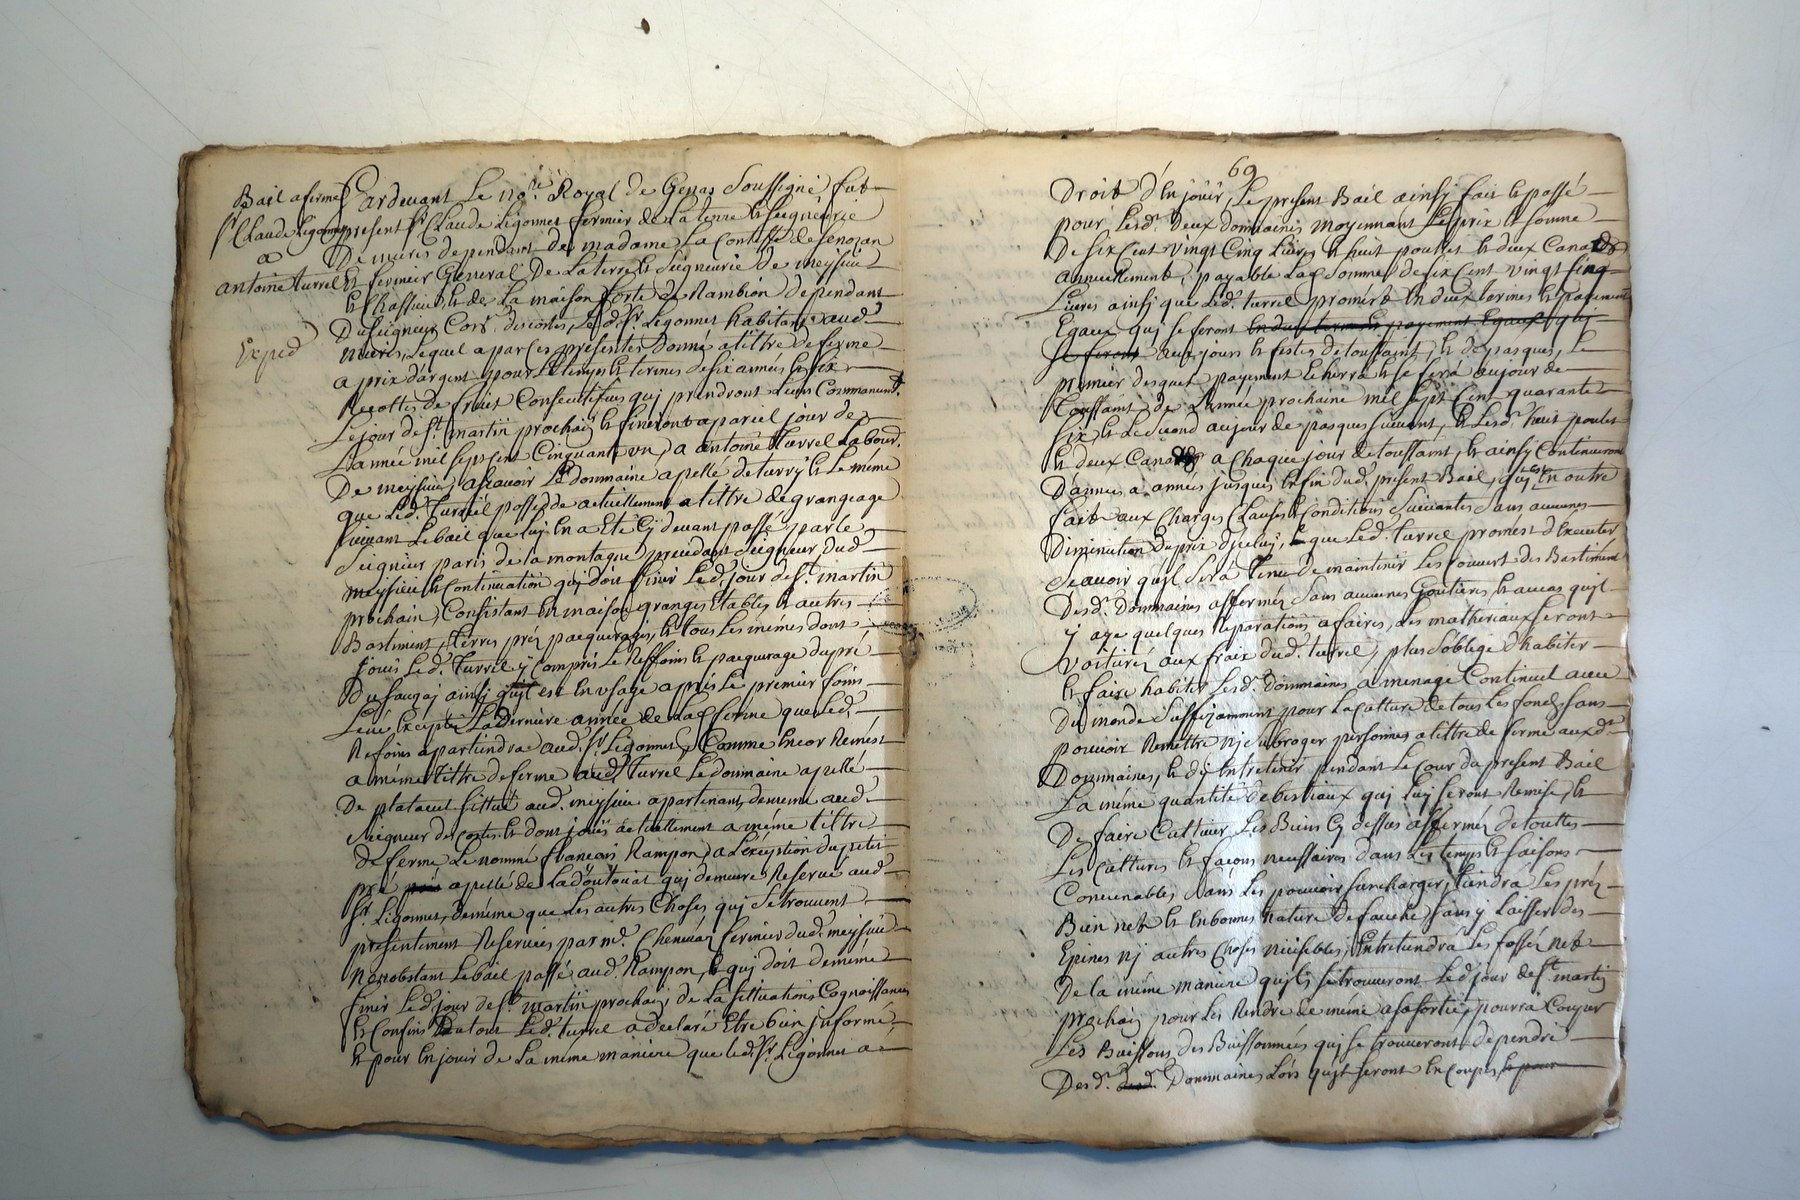 Bail a ferme
Sr Claude Ligonnet
a
antoine turrel
Exped
Pardevant Le nore. Royal de Genas Soussigné fut
present Sr. Claude Ligonnet fermier de La terre et seigneurie
De mieres dependant de madame La Contesse de senozan
Et fermier General De La terre et Seigneurie de meyssieu
Et Chassieu et de La maison forte de Rambion dependant
Du seigneur descostes, Led. Sr. Ligonnet habitant aud.
mieres, Lequel a par ces presentes Donné a tittre de ferme
a prix d'argent pour Le temps et termes de six années et six
Recoltes de fruit Consecutifves quj prendront Leurs Commancemt.
Le jour de st. martin prochain et finiront a pareil jour de
L'année mil sept cent Cinquante un, a antoine Turrel Labour.
De meyssieu, ascavoir Le domaine apellé de turry et Le même
que Led. Turrel possede actuellement a tittre de grangeage
suivant Le bail que luy En a eté cy devant passé par Le
Seigneur paris de La montagne precedant Seigneur dud.
meyssieu et Continuation quj doit finir Led. jour de st. martin
prochain, Consistant En maison granges Etables et autres
Bastiment, terres prez paequerages, et tous Les mêmes dont
jouit Led. Turrel y Compris Le Reffoins et paequerage du pré
Du saugaj ainsj quil est En usage aprés Le premier foins
Levé Excepté La derniere année de Lad. ferme que Led.
Refoins apartiendra aud. Sr. Ligonnet, Comme Encor Remest
a même tittre de ferme aud. Turrel Le dommaine apellé
De platacul sittué aud. meyssieu apartenant demême aud.
Seigneur de costes et dont jouit actuellement a même tittre
De ferme Le nommé francois Rampon, a L'exception du petit
pré apellé de quj demeure Reservé aud.
Sr. Ligonnet, demême que Les autres Choses quj se trouvent
presentement Reservées par mr. fermier dud. meyssieu
Nonobstant Le bail passé aud. Rampon, et quj doit demême
finir Led. jour de st. martin prochain, de La sittuations Cognoissances
Et Confins Du tout Led. turrel a declaré Etre bien jnformé,
Et pour En jouir de La même maniere que Led. Sr. Ligonnet a
69
Droit d'En jouir, Le present Bail ainsj fait et passé
pour Lesd. Deux dommaines moyennant Le prix et somme
De six Cent vingt Cinq Livres et huit poulets et deux Canards
annuellement, payable Lad. somme de six Cent vingt Cinq
Livres ainsj que Led. turrel promet En deux termes et payements
Egaux quj se feront En deux termes et payement Egaux quj
se feront aux jours et festes de toussaint et de pasques, Le
premier desquel payement Echerra et se fera au jour de
Toussaint de L'année prochaine mil sept Cent quarante
six et Le second au jour de pasques suivant, et Lesd. huit poulets
et deux Canards a Chaque jour de toussaint, et ainsy Continueront
D'années a années jusques En fin dud. present Bail, quj est En outre
fait aux Charges Clauses et Conditions suivantes sans aucunes
Diminution du prix d'jceluj, et que Led. turrel promest d'Executer
Scavoir quil sera Tenu de maintenir Les couvert des Bastiment
Desd. Dommaines affermés sans aucunes Goutieres, et au cas quil
y aye quelques Reparations a faires, Les matheriaux seront
voiturez aux fraix dud. turrel, plus s'oblige d'habiter
Et faire habiter Lesd. Dommaines a menage Continuel avec
Du monde suffizamment pour La Culture de tous Les fond sans
pouvoir Remettre nj subroger personnes a tittre de ferme auxd.
Dommaines, et d'y Entretenir pendant Le Cour du present Bail
La même quantité de bestiaux quj luy seront Remise, et
De faire Cultiver Les Biens Cy dessus affermez de touttes
Les Cultures et facons necessaires dans Les temps et saisons
Convenables sans Les pouvoir surcharger, tiendra Les préz
Bien net et En bonnes nature de fauche sans y Laisser des
Epines nj autres Choses nuisibles, Entretiendra Les fossés net
De la même maniere quils se trouveront Led. jour de st. martin
prochain pour Les Rendre de même a sa sortie, pourra Couper
Les Buissons des Buissonnées quj se trouveront dependre
Desd. Desd. Dommaines Lors quils seront En Coupes et pour